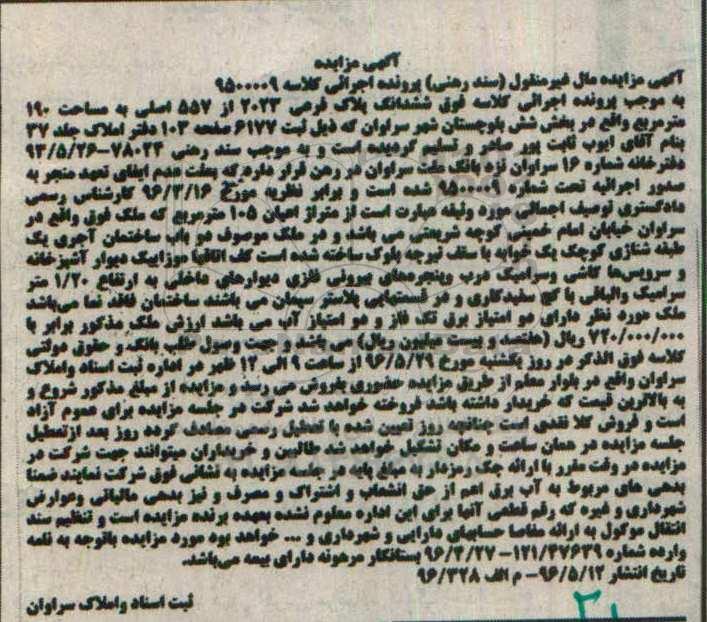 آگهی مزایده
آگهی مزایده مال غیرمنقول (سند رهنی) پرونده اجرائی کلاسه ۹۵۰۰۰۰۹
به موجب پرونده اجرائی کلاسه فوق ششدانگ پلاک فرعی ۲۰۲۳ از ۵۵۷ اصلی به مساحت ۱۹۰
مترمربع واقع در بخش شش بلوچستان شهر سراوان که ذیل ثبت ۶۱۷۷ صفحه ۱۰۳ دفتر املاک جلد ۳۷
بنام آقای ایوب ثابت پور صادر و تسلیم گردیده است و به موجب سند رهنی ۷۸۰۲۴-۹۳/۵/۲۶
دفترخانه شماره ۱۶ سراوان نزد بانک ملت سراوان در رهن قرار دارد که بعلت عدم ایفای تعهد منجر به
صدور اجرائیه تحت شماره ۹۵۰۰۰۰۹ شده است و برابر نظریه مورخ ۹۶/۳/۱۶ کارشناس رسمی
دادگستری توصیف اجمالی مورد وثیقه عبارت است از متراژ اعیان ۱۰۵ مترمربع که ملک فوق واقع در
سراوان خیابان امام خمینی کوچه شریعتی می باشد و در ملک موصوف دو باب ساختمان آجری یک
طبقه شناژی کوچک یک خوابه با سقف تیرچه بلوک ساخته شده است کف اتاقها موزاییک دیوار آشپزخانه
و سرویس‌ها کاشی وسرامیک درب وپنجره‌های بیرونی فلزی دیوارهای داخلی به ارتفاع ۱/۲۰ متر
سرامیک والباقی با گچ سفیدکاری و در قسمتهایی پلاستر سیمان می باشند ساختمان فاقد نما می‌باشد
ملک مورد نظر دارای دو امتیاز برق تک فاز و دو امتیاز آب می باشد ارزش ملک مذکور برابر با
۷۲۰/۰۰۰/۰۰۰ ریال (هفتصد و بیست میلیون ریال) می باشد و جهت وصول طلب بانک و حقوق دولتی
کلاسه فوق الذکر در روز یکشنبه مورخ ۹۶/۵/۲۹ از ساعت ۹ الی ۱۲ ظهر در اداره ثبت اسناد واملاک
سراوان واقع در بلوار معلم از طریق مزایده حضوری بفروش می رسد و مزایده از مبلغ مذکور شروع و
به بالاترین قیمت که خریدار داشته باشد فروخته خواهد شد شرکت در جلسه مزایده برای عموم آزاد
است و فروش کلا نقدی است چنانچه روز تعیین شده با تعطیل رسمی مصادف گردد روز بعد ازتعطیل
جلسه مزایده در همان ساعت و مکان تشکیل خواهد شد طالبین و خریداران میتوانند جهت شرکت در
مزایده در وقت مقرر با ارائه چک رمزدار به مبلغ پایه در جلسه مزایده به نشانی فوق شرکت نمایند ضمنا
بدهی های مربوط به آب برق اعم از حق انشعاب و اشتراک و مصرف و نیز بدهی مالیاتی وعوارض
شهرداری و غیره که رقم قطعی آنها برای این اداره معلوم نشده بعهده برنده مزایده است و تنظیم سند
انتقال موکول به ارائه مفاصا حسابهای دارایی و شهرداری و ... خواهد بود مورد مزایده باتوجه به نامه
وارده شماره ۱۲۱/۴۷۶۳۹-۹۶/۴/۲۷ بستانکار مرهونه دارای بیمه می‌باشد.
تاریخ انتشار ۹۶/۵/۱۲- م الف ۹۶/۳۲۸
ثبت اسناد واملاک سراوان